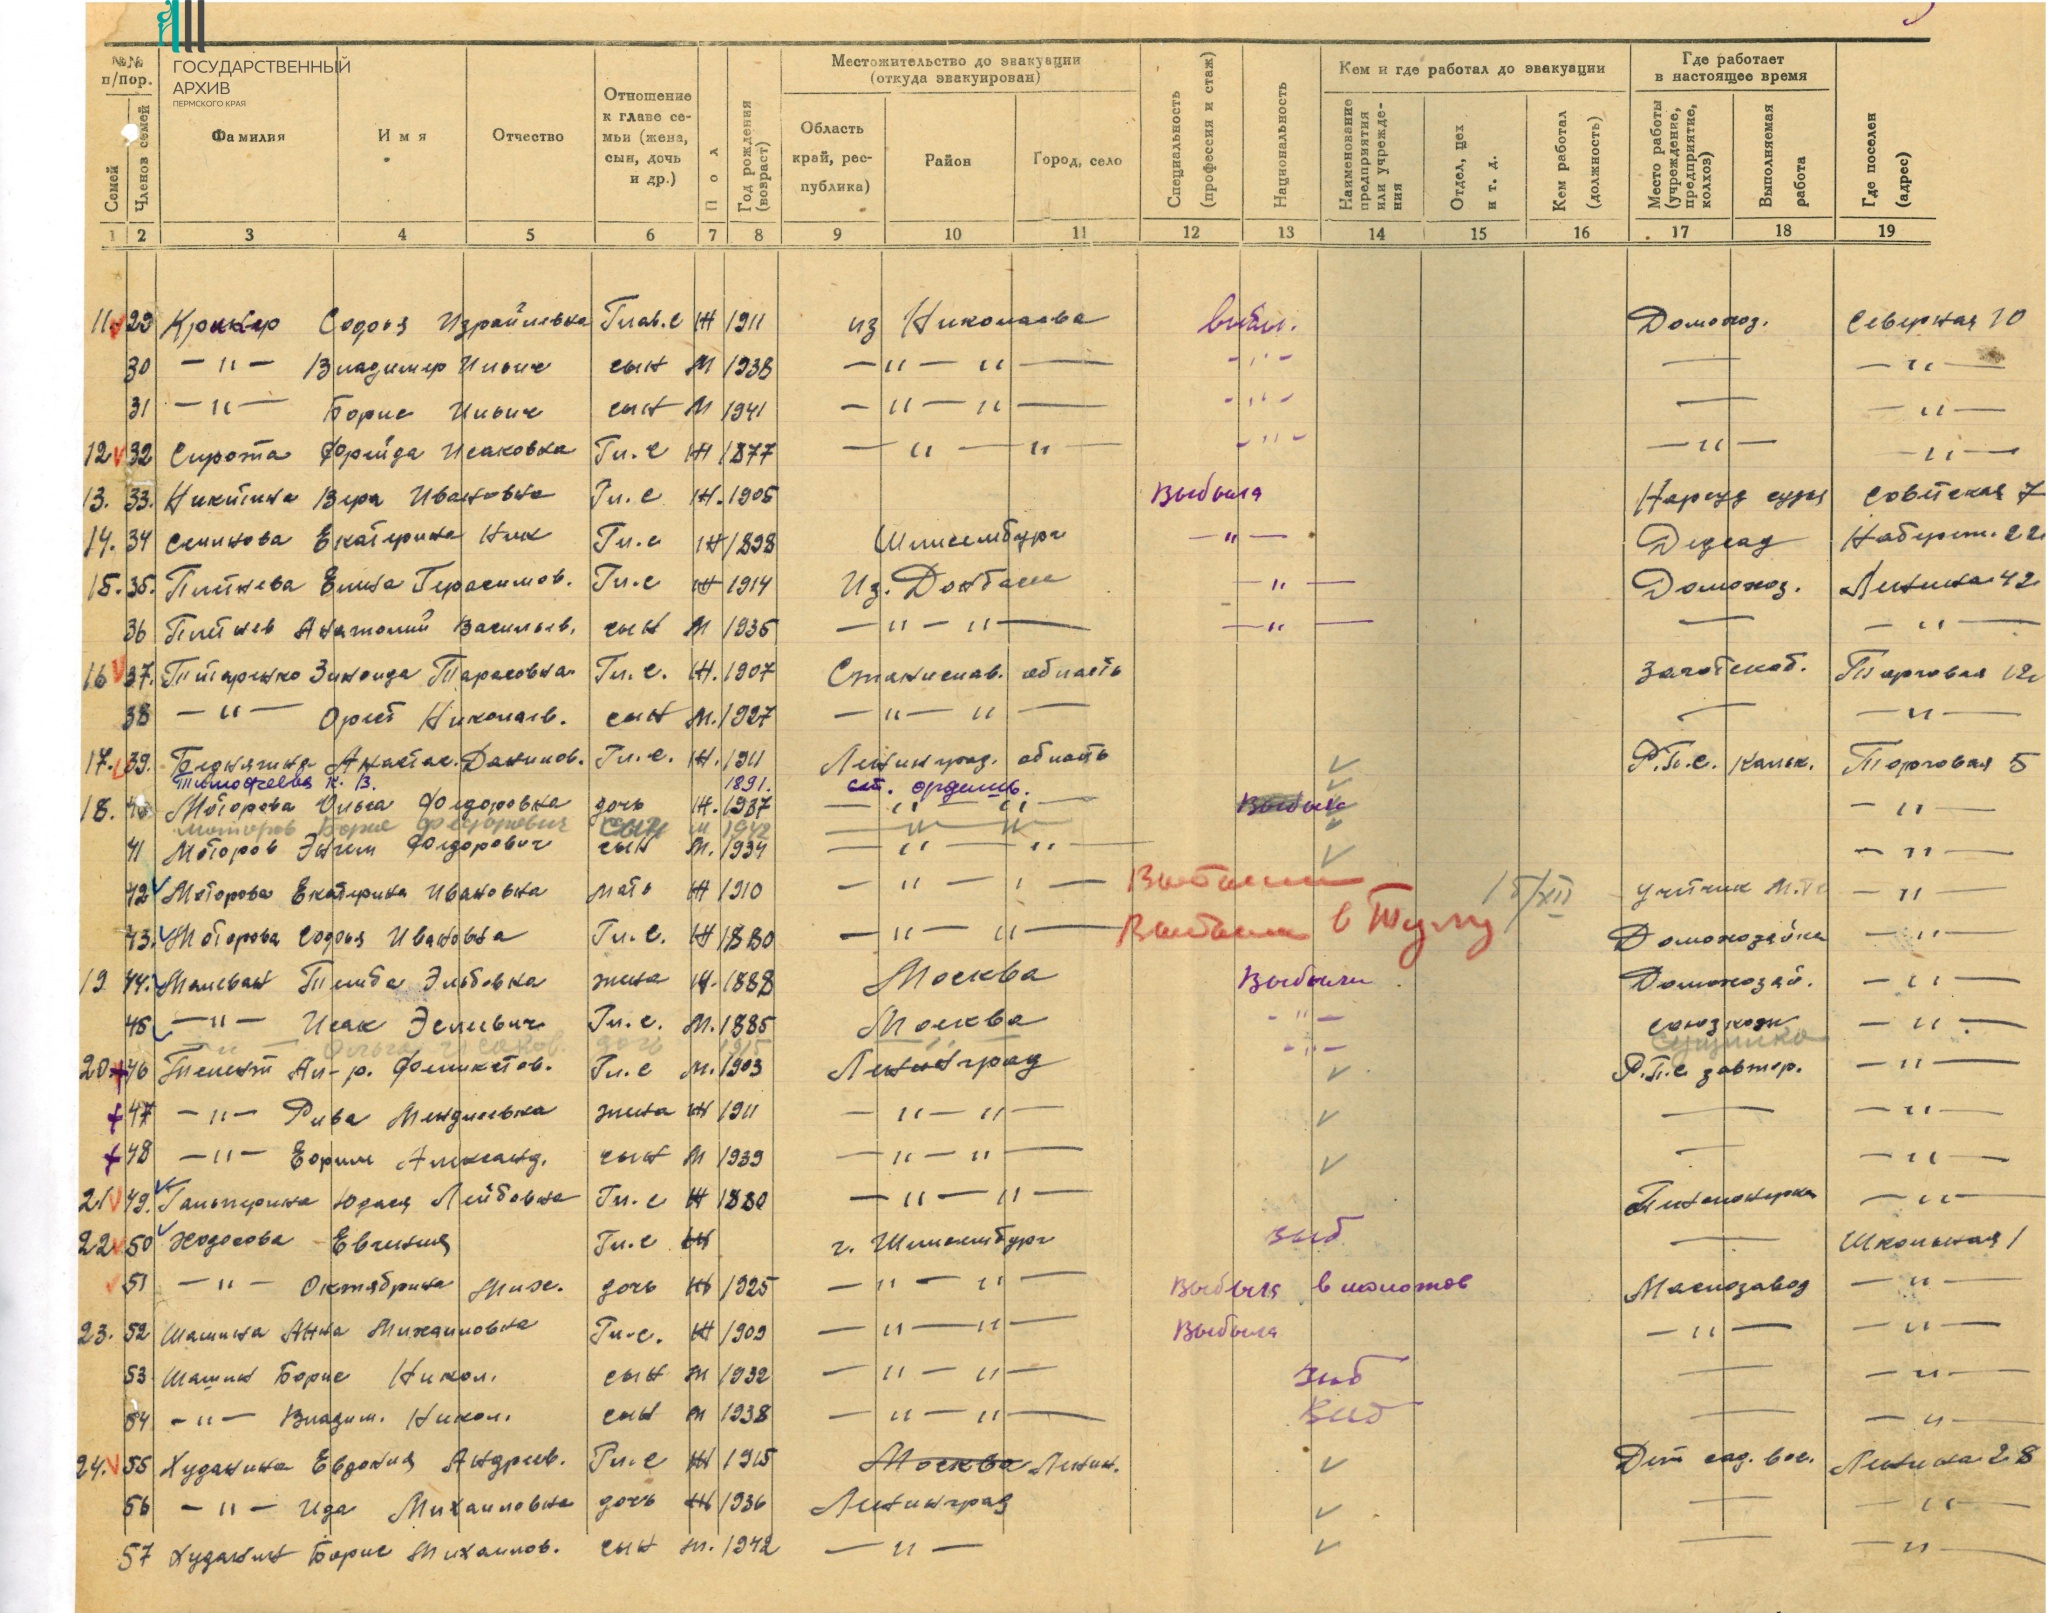 ГОСУДАРСТВЕННЫЙ
АРХИВ
ПЕРМСКОГО КРАЯ
№№ п/пор. Местожительство до эвакуации (откуда эвакуирован) Кем и где работал до эвакуации Где работает в настоящее время
Семей Членов семей Фамилия Имя Отчество Отношение к главе семьи (жена, сын, дочь и др.) Пол Год рождения (возраст) Область край, республика) Район Город, село Специальность (профессия и стаж) Национальность Наименование предприятия или учреждения Отдел, цех и т. д. Кем работал (должность) Место работы (учреждение, предприятие, колхоз) Выполняемая работа Где поселен (адрес)
1 2 3 4 5 6 7 8 9 10 11 12 13 14 15 16 17 18 19
11. 29 Софья Израйлевна Глав.с Ж 1911 из Николаева выбыл. Домохоз. Северная 10
30 —"— Владимир Ильич сын М 1938 —"— "— -"- — —"—
31 —"— Борис Ильич сын М 1941 —"— "— -"- — —"—
12 32 Сирота Фрейда Исаковна Гл.с Ж 1877 —"— "— -"- —"— —"—
13. 33. Никитина Вера Ивановна Гл.с Ж. 1905 Выбыла Нарсуд судья Советская 7
14. 34 Семенова Екатерина Ник Гл.с Ж 1898 Шлиссельбург —"— Детсад Набереж. 22
15. 35. Елена Герасимов. Гл.с Ж 1914 Из. Донбаса —"— Домохоз. Ленина 42
36 Анатолий Васильев. сын М 1935 —"— "— —"— — —"—
16 37. Титаренко Зинаида Тарасовна Гл.с. Ж. 1907 Станислав. область Заготскот. Торговая 12
38 —"— Орест Николаев. сын М. 1927 —"— "— — —"—
17. 39. Анастас. Данилов. Гл.с. Ж. 1911 Ленинград. область Р.П.С. Кальк. Торговая 5
Тимофеева К. В. 1891.
18. 40 Моторова Ольга Федоровна дочь Ж. 1937 —"— "— Выбыла —"—
Моторов Борис Федорович сын м 1942 —"— "—
41 Моторов Федорович сын М. 1934 —"— "— —"—
42 Моторова Екатерина Ивановна мать Ж 1910 —"— "— Выбыли 15/XII учетчик —"—
43. Моторова Софья Ивановна Гл.с. Ж 1880 —"— "— Выбыли в Тулу Домохозяйка —"—
19 44. жена Ж. 1888 Москва Выбыли Домохозяй. —"—
45 —"— Исак Гл.с. М. 1885 Москва -"- —"—
—"— Ольга Исаков. дочь 1915 -"-
20 46 Ал-р. Феликсов. Гл.с М. 1903 Ленинград Р.П.С завтор. —"—
47 —"— Рива Менделевна жена Ж 1911 —"— "— — —"—
48 —"— Ефим Александ. сын М 1939 —"— "— — —"—
21 49. Гальперина Юдася Лейбовна Гл.с Ж 1880 —"— "— Пенсионерка —"—
22 50 Ходосова Евгения Гл.с Ж г. Шлиссельбург выб — Школьная 1
51 —"— Октябрина Мих. дочь Ж 1925 —"— "— Выбыла в молотов Маслозавод —"—
23. 52 Шашина Анна Михаиловна Гл.с. Ж 1909 —"— "— Выбыла —"— —"—
53 Шашин Борис Никол. сын М 1932 —"— "— выб — —"—
54 —"— Владим. Никол. сын М 1938 —"— "— Выб — —"—
24. 55 Худанина Евдокия Андреев. Гл.с Ж 1915 Москва Ленин. Дет сад. вос. Ленина 28
56 —"— Ида Михаиловна дочь Ж 1936 Ленинград — —"—
57 Худанин Борис Михаилов. сын м. 1942 —"— — —"—